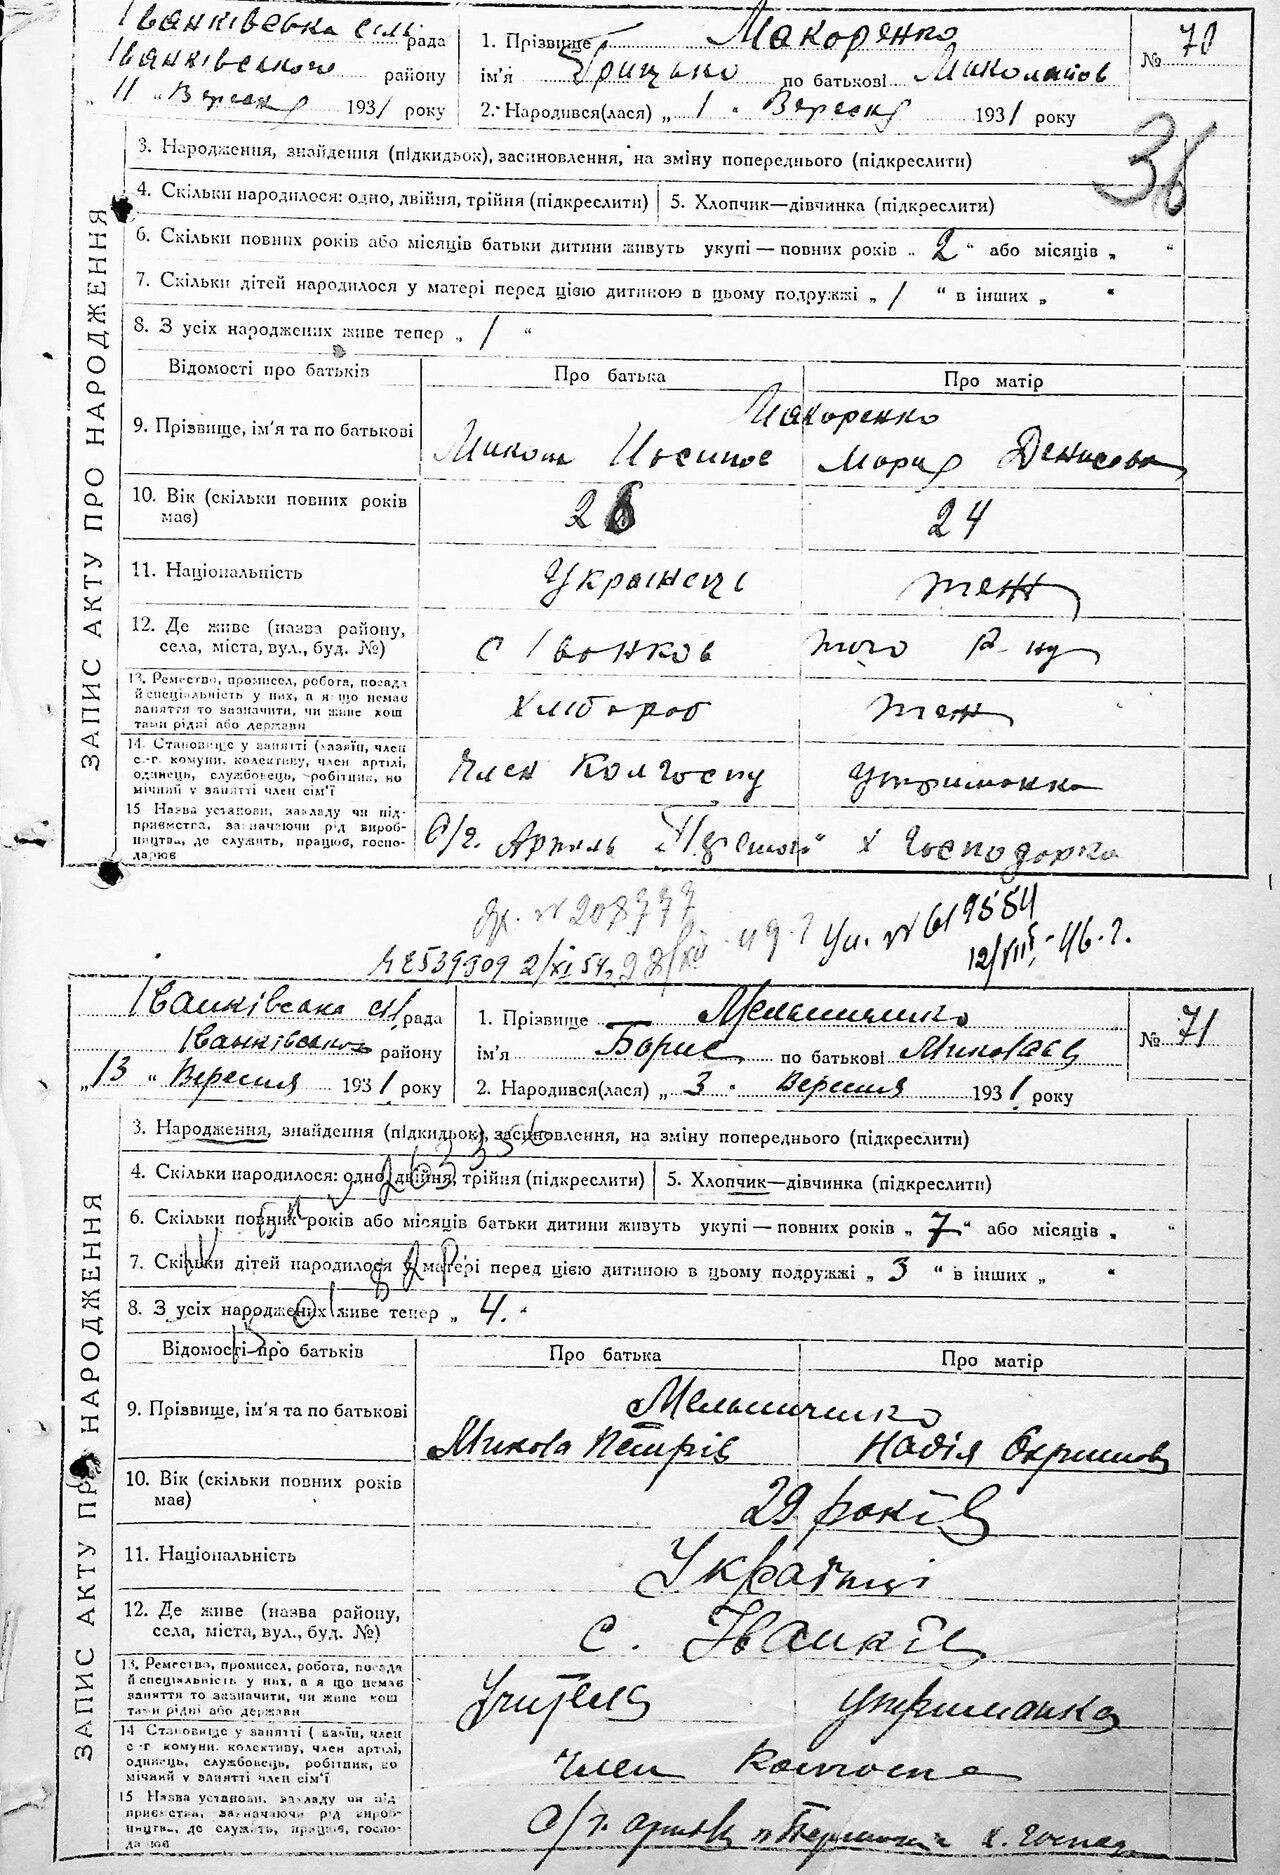 Іванківська сіль рада
Іванківського району
„ 11 " Вересня 1931 року
1. Прізвище Макоренко
ім'я Грицько по батькові Миколайов
2. Народився(лася) „ 1 " Вересня 1931 року
№ 70
36
ЗАПИС АКТУ ПРО НАРОДЖЕННЯ
3. Народження, знайдення (підкидьок), засиновлення, на зміну попереднього (підкреслити)
4. Скільки народилося: одно, двійня, трійня (підкреслити) 5. Хлопчик—дівчинка (підкреслити)
6. Скільки повних років або місяців батьки дитини живуть укупі — повних років „ 2 " або місяців „ "
7. Скільки дітей народилося у матері перед цією дитиною в цьому подружжі „ 1 " в інших „ "
8. З усіх народжених живе тепер „ 1 "
Відомості про батьків Про батька Про матір
9. Прізвище, ім'я та по батькові
Макоренко
Микола Иосипов Мария Денисова
10. Вік (скільки повних років має) 26 24
11. Національність Українці теж
12. Де живе (назва району, села, міста, вул., буд. №)
с Іванков того Р-ну
13. Ремество, промисел, робота, посада
й спеціяльність у них, а якщо немає
заняття то зазначити, чи живе кош
тами рідні або держави
Хлібороб теж
14. Становище у занятті (хазяїн, член
с.-г. комуни, колективу, член артілі,
одинець, службовець, робітник, по
мічний у занятті член сім'ї
Член Колгоспу утриманка
15 Назва установи, закладу чи під-
приємства, зазначаючи рід вироб-
ництва, де служить, працює, госпо-
дарює
С/г. Артель Х Господарка
№ 208777
2/XI 54
Уп. № 619554
12/VIII - 46. г.
Іванківська с/ рада
Іванківського району
„ 13 " Вересня 1931 року
1. Прізвище Мельниченко
ім'я Борис по батькові Миколаєв
2. Народився(лася) „ 3 " Вересня 1931 року
№ 71
ЗАПИС АКТУ ПРО НАРОДЖЕННЯ
3. Народження, знайдення (підкидьок), засиновлення, на зміну попереднього (підкреслити)
4. Скільки народилося: одно, двійня, трійня (підкреслити) 5. Хлопчик—дівчинка (підкреслити)
6. Скільки повних років або місяців батьки дитини живуть укупі — повних років „ 7 " або місяців „ "
7. Скільки дітей народилося у матері перед цією дитиною в цьому подружжі „ 3 " в інших „ "
8. З усіх народжених живе тепер „ 4. "
Відомості про батьків Про батька Про матір
9. Прізвище, ім'я та по батькові
Мельниченко
Микола Петрів Надія
10. Вік (скільки повних років має) 29 років
11. Національність Українці
12. Де живе (назва району, села, міста, вул., буд. №)
с. Іванків
13. Ремество, промисел, робота, посада
й спеціяльність у них, а якщо немає
заняття то зазначити, чи живе кош
тами рідні або держави
Учитель утриманка
14 Становище у занятті (хазяїн, член
с-г комуни. колективу, член артілі,
одинець, службовець, робітник, по
мічний у занятті член сім'ї
Член
15 Назва установи, закладу чи під
приємства, зазначаючи рід вироб-
ництва, де служить, працює, госпо-
дарює
С/г. х. господ